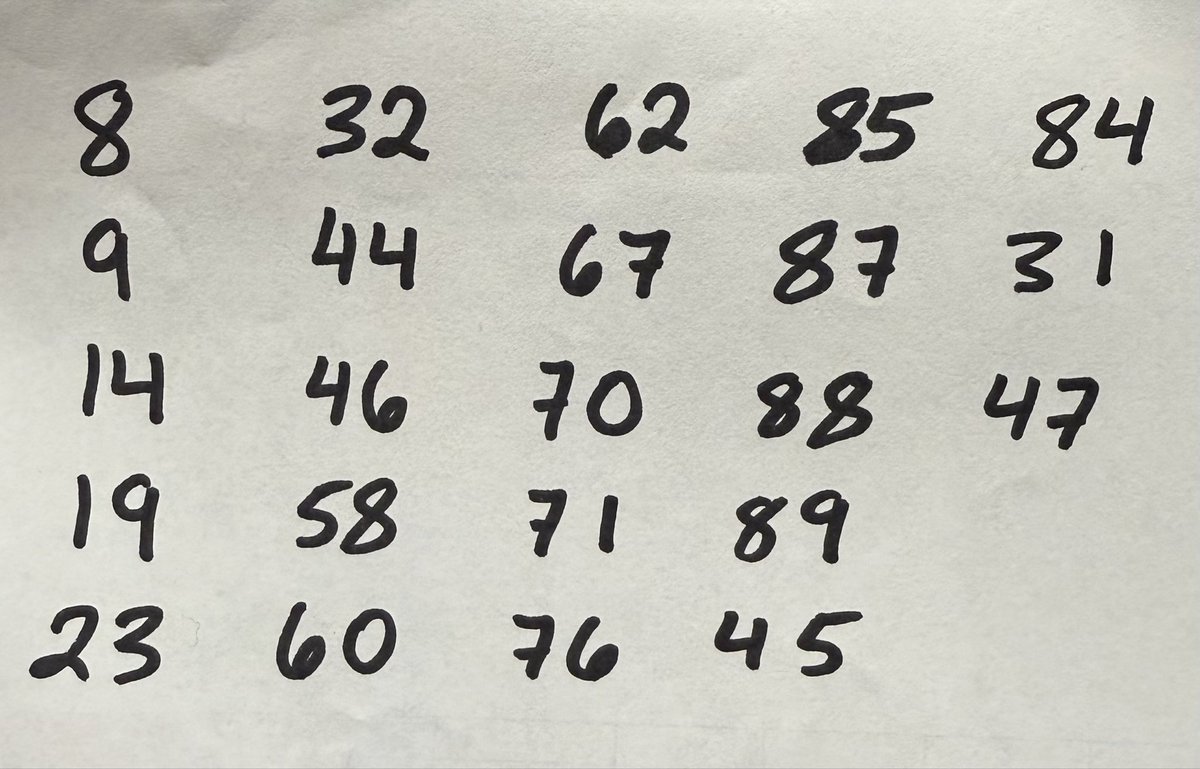 8 32 62 85 84
9 44 67 87 31
14 46 70 88 47
19 58 71 89
23 60 76 45